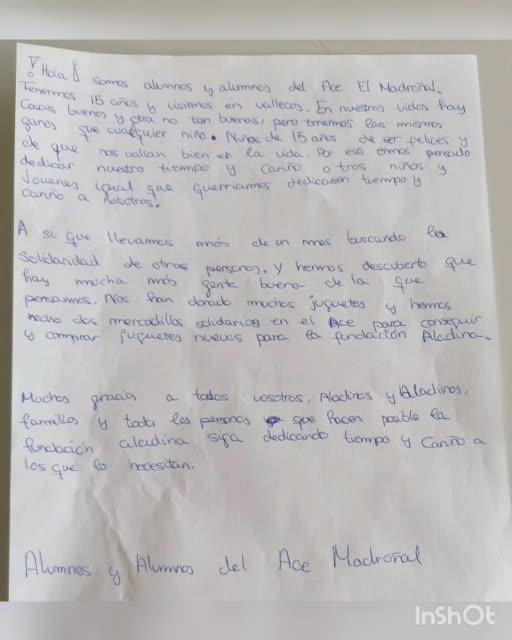 ¡Hola! somos alumnos y alumnas del Ace El Madroñal.
Tenemos 15 años y vivimos en vallecas. En nuestras vidas hay
Cosas buenas y otra no tan buenas, pero tenemos las mismas
ganas que cualquier niño. Niños de 15 años de ser felices y
de que nos vallan bien en la vida. Por eso emos pensado
dedicar nuestro tiempo y Cariño a otros niños y
Jovenes igual que querriamos dedicasen tiempo y
cariño a nosotros.
A si que llevamos más de un mes buscando la
Solidaridad de otras personas. Y hemos descubierto que
hay mucha más gente buena de la que
pensamos. Nos han donado muchos juguetes y hemos
hecho dos mercadillos solidarios en el Ace para conseguir
y comprar juguetes nuevos para la fundación Aladina.
Muchas gracias a todos vosotros, Aladinos y Aladinas,
familias y todas las personas que hacen posible la
fundación aladina siga dedicando tiempo y Cariño a
los que lo necesitan.
Alumnos y Alumnas del Ace Madroñal
InShOt